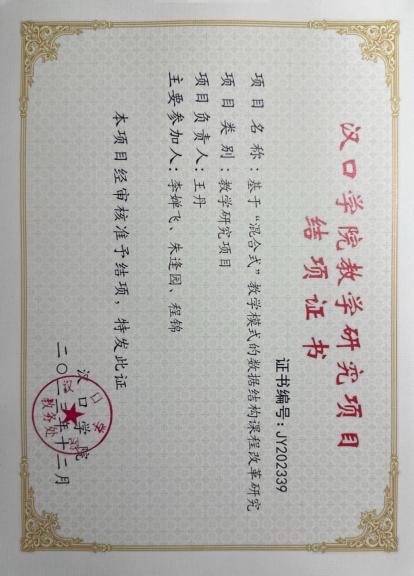 汉口学院教学研究项目
结项证书
证书编号：JY202339
项目名称：基于“混合式”教学模式的数据结构课程改革研究
项目类别：教学研究项目
项目负责人：王丹
主要参加人：李婵飞、朱逢园、程锦
本项目经审核准予结项，特发此证
汉口学院
二〇二三年十二月
汉口学院
教务处